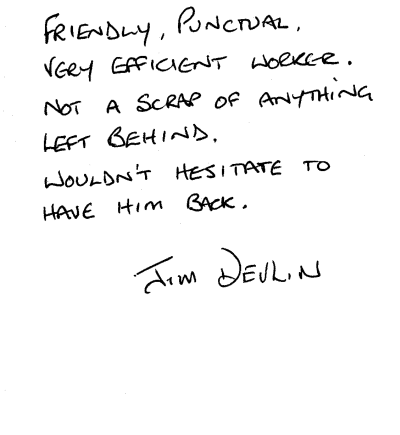 FRIENDLY, PUNCTUAL,
VERY EFFICIENT WORKER.
NOT A SCRAP OF ANYTHING
LEFT BEHIND.
WOULDN'T HESITATE TO
HAVE HIM BACK.
JIM DEVLIN